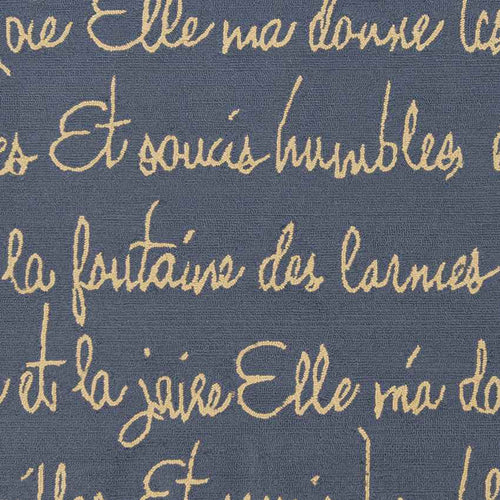 Elle ma donne
Et soucis humbles
la fontaine des larmes
et la joire Elle m'a
Et